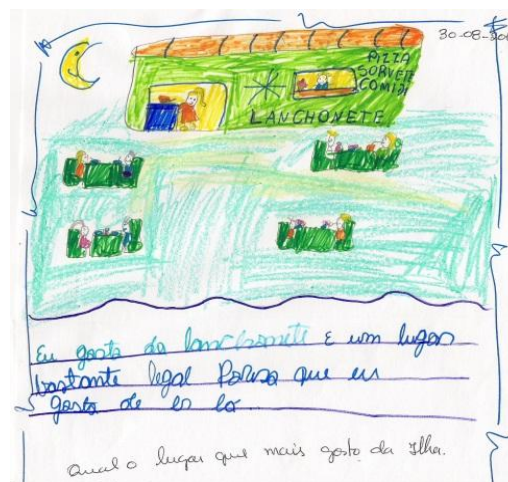 30-08-20
PIZZA
SORVETE
COMIDA
LANCHONETE
Eu gosto da lanchonete E um lugar
bastante legal Parsa que eu
gosto de es la
Qual o lugar que mais gosto da Ilha.